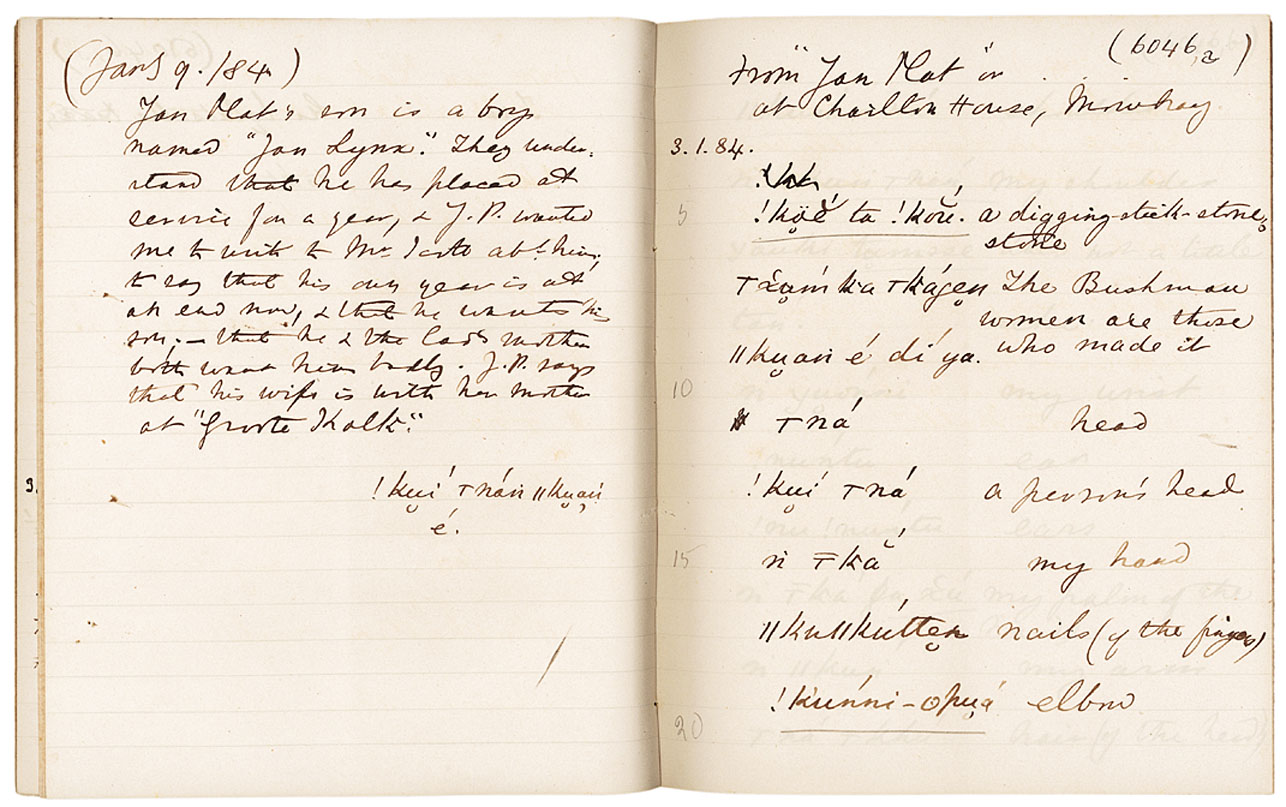 (Jany 9. /84)
Jan Plat's son is a boy
named "Jan Lynx". They under-
stand that he has placed at
service for a year, & J.P. wanted
me to write to Mr abt. him,
to say that his own year is at
an end now, & that he wants his
son; — that he & the lad's mother
both want him badly. J.P. says
that his wife is with her mother
at "Groote Kolk".
!kuí
é.
(6046,a)
From "Jan Plat" on
at Charlton House, Mowbray.
3.1.84.
5 ta !kou. a digging-stick-stone,
stone
The Bushman
women are those
é dí ya. who made it
10
ná head
!kuí ná a person's head
15 ń kắ my hand
ǁkuǁkútten nails (of the fingers)
!kúnni-opuá elbow
20